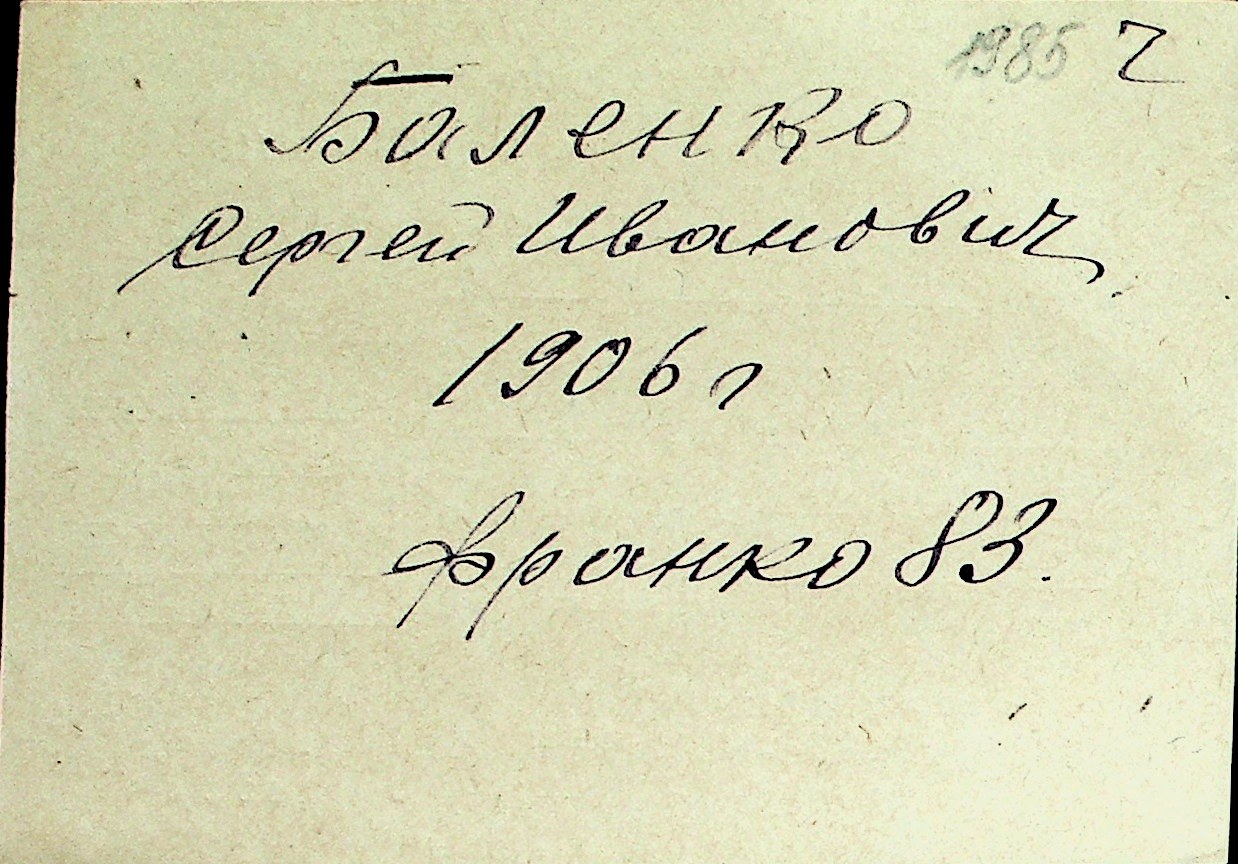 1985 г
Баленко
Сергей Иванович
1906 г
Франко 83.